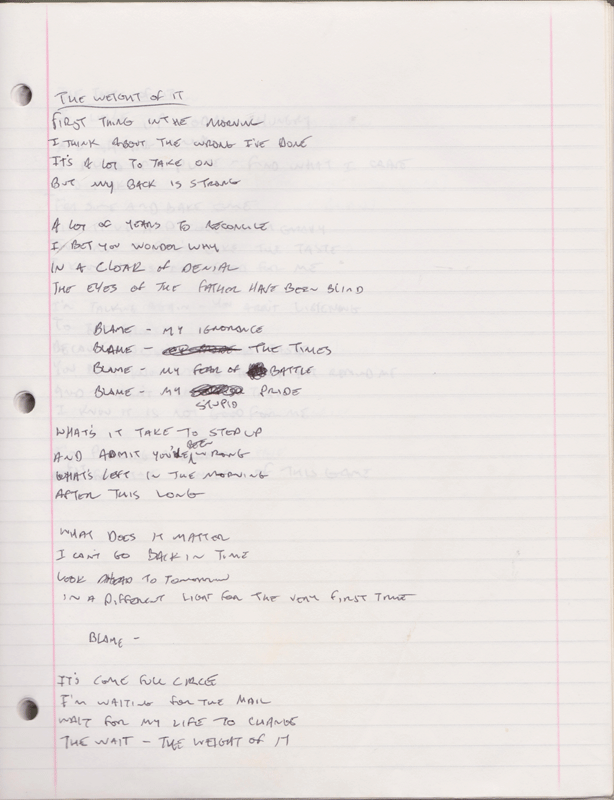 THE WEIGHT OF IT
FIRST THING IN THE MORNIN
I THINK ABOUT THE WRONG I'VE DONE
IT'S A LOT TO TAKE ON
BUT MY BACK IS STRONG
A LOT OF YEARS TO RECONCILE
I BET YOU WONDER WHY
IN A CLOAK OF DENIAL
THE EYES OF THE FATHER HAVE BEEN BLIND
BLAME - MY IGNORANCE
BLAME - THE TIMES
BLAME - MY FEAR OF BATTLE
BLAME - MY STUPID PRIDE
WHAT'S IT TAKE TO STEP UP
AND ADMIT YOU'VE BEEN WRONG
WHAT'S LEFT IN THE MORNING
AFTER THIS LONG
WHAT DOES IT MATTER
I CAN'T GO BACK IN TIME
LOOK AHEAD TO TOMORROW
IN A DIFFERENT LIGHT FOR THE VERY FIRST TIME
BLAME -
IT'S COME FULL CIRCLE
I'M WAITING FOR THE MAIL
WAIT FOR MY LIFE TO CHANGE
THE WAIT - THE WEIGHT OF IT